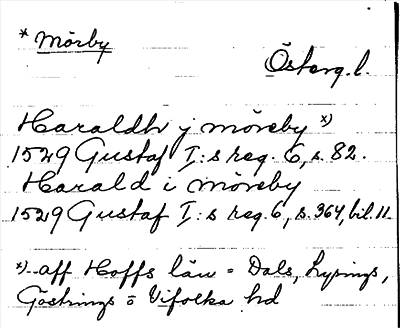 * Mörby
Österg.l.
Haraldh j möreby x)
1529 Gustaf I:s reg. 6, s. 82.
Harald i möreby
1529 Gustaf I:s reg. 6, s. 364, bil. 11.
x) aff Hoffs län = Dals, Lysings,
Göstrings o Vifolka hd